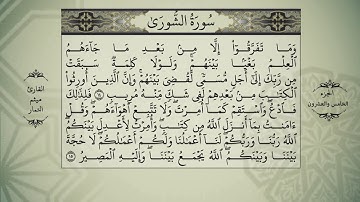 سُورَةُ الشُّورَىٰ
وَمَا تَفَرَّقُوٓا۟ إِلَّا مِنۢ بَعْدِ مَا جَآءَهُمُ
ٱلْعِلْمُ بَغْيًۢا بَيْنَهُمْ ۚ وَلَوْلَا كَلِمَةٌ سَبَقَتْ
مِن رَّبِّكَ إِلَىٰٓ أَجَلٍ مُّسَمًّى لَّقُضِىَ بَيْنَهُمْ ۚ وَإِنَّ ٱلَّذِينَ أُورِثُوا۟
ٱلْكِتَٰبَ مِنۢ بَعْدِهِمْ لَفِى شَكٍّ مِّنْهُ مُرِيبٍ ١٤ فَلِذَٰلِكَ
فَٱدْعُ ۖ وَٱسْتَقِمْ كَمَآ أُمِرْتَ ۖ وَلَا تَتَّبِعْ أَهْوَآءَهُمْ ۖ وَقُلْ
ءَامَنتُ بِمَآ أَنزَلَ ٱللَّهُ مِن كِتَٰبٍ ۖ وَأُمِرْتُ لِأَعْدِلَ بَيْنَكُمُ ۖ
ٱللَّهُ رَبُّنَا وَرَبُّكُمْ ۖ لَنَآ أَعْمَٰلُنَا وَلَكُمْ أَعْمَٰلُكُمْ ۖ لَا حُجَّةَ
بَيْنَنَا وَبَيْنَكُمُ ۖ ٱللَّهُ يَجْمَعُ بَيْنَنَا ۖ وَإِلَيْهِ ٱلْمَصِيرُ ١٥
الجزء
الخامس والعشرون
القارئ
ميثم
التمار